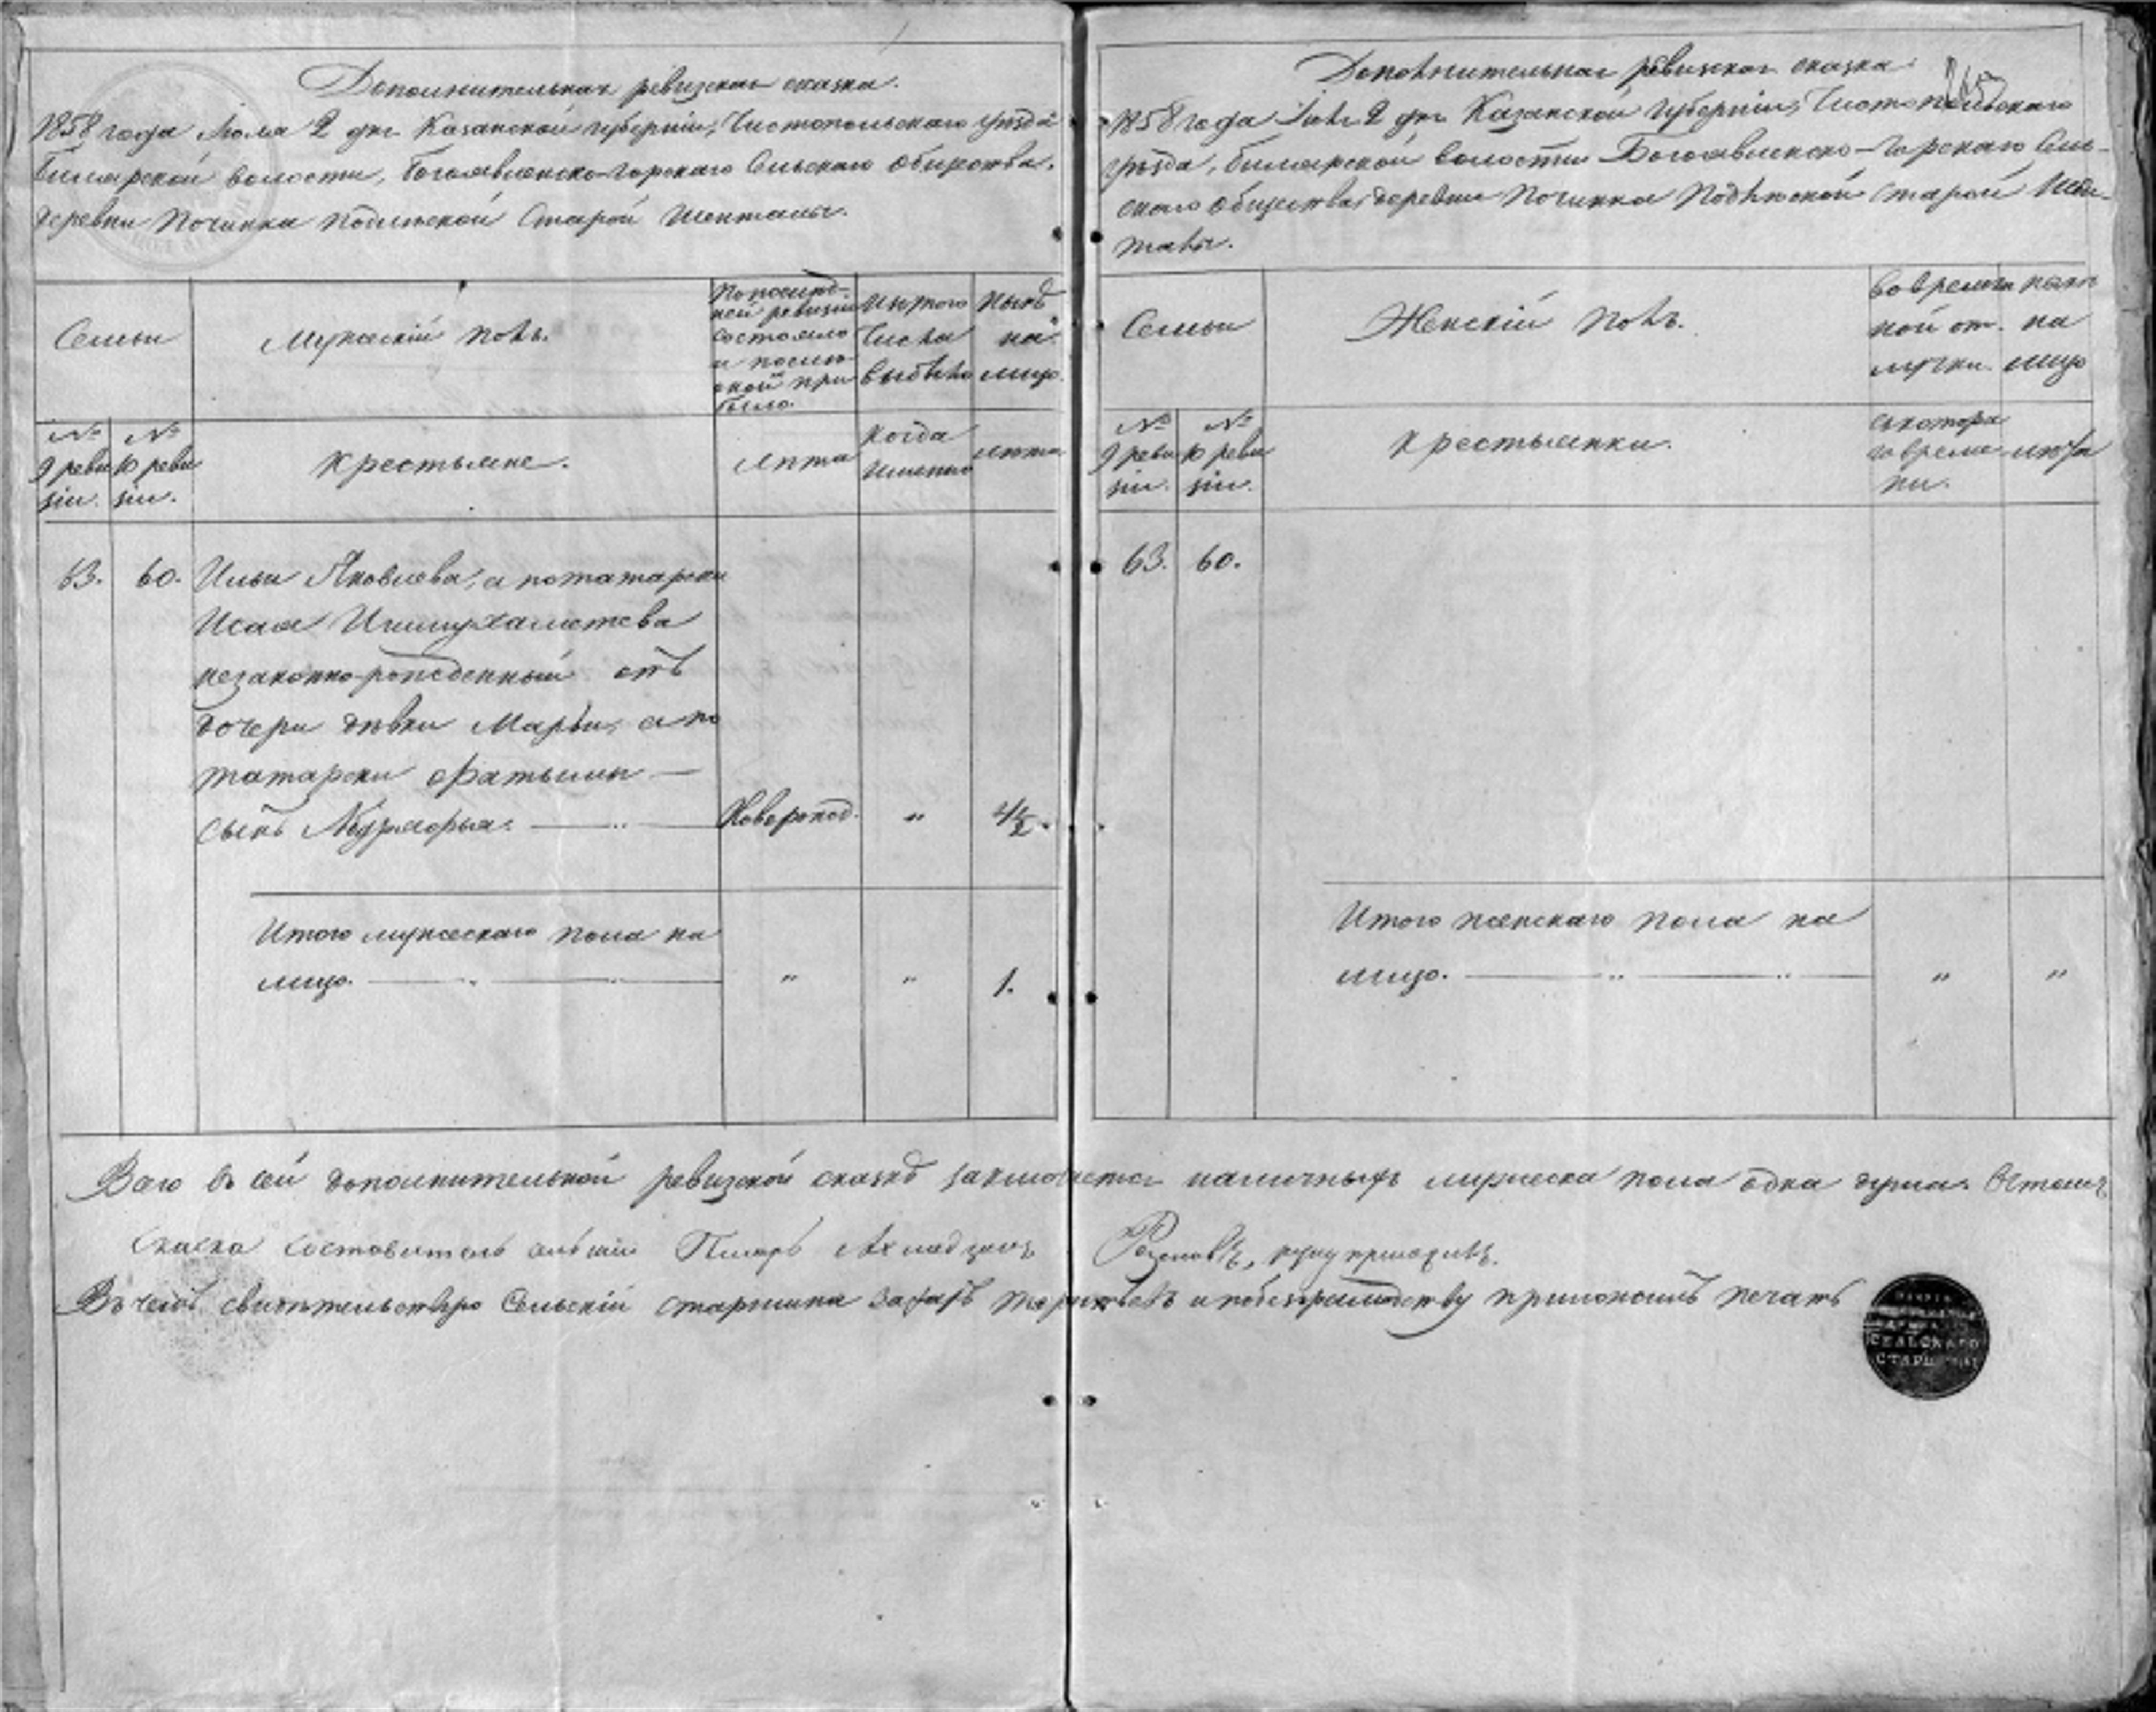 Дополнительная ревизская сказка.
1858 года Июля 2 дня Казанской губерніи, Чистопольскаго уѣзда
Билярской волости, Богоявленско-Горскаго Сельскаго общества.
деревни Починка Подлѣсной Старой Шенталы.
Семьи
Мужескій полъ.
По послѣд-
ней ревизіи
состояло
и послѣ
оной при
было.
Изъ того
числа
выбыло
Нынѣ
на
лицо.
№
9 реви
зіи.
№
10 реви
зіи.
Крестьяне.
Лѣта
Когда
именно
лѣта
63. 60. Ильи Яковлева, а по татарски
Исая Ишмухаметева
незаконно-рожденный отъ
дочери дѣвки Марьи, а по
татарски Фатымы —
сынъ Абдулзофыя. Новорожд. " 4/2.
Итого мужескаго пола на
лицо. " " 1.
Дополнительная ревизская сказка.
1858 года Іюля 2 дня Казанской губерніи, Чистопольскаго
уѣзда, Билярской волости Богоявленско-Горскаго Сель-
скаго общества, деревни Починка Подлѣсной Старой Шен-
талы.
Семьи
Женскій полъ.
Во времен
ной от-
лучки.
Нынѣ
на
лицо
№
9 реви
зіи.
№
10 реви
зіи.
Крестьянки.
съ котора
го време
ни.
лѣта
63. 60.
Итого женскаго пола на
лицо. " "
Всего въ сей дополнительной ревизской сказкѣ заключается наличныхъ мужеска пола одна душа.
Сказка составитель сельскій Писарь Ахмадзянъ руку приложилъ.
Въ чемъ свидѣтельствую Сельскій старшина и по безграмотству приложилъ печать
СЕЛЬСКАГО
СТАРШИНЫ